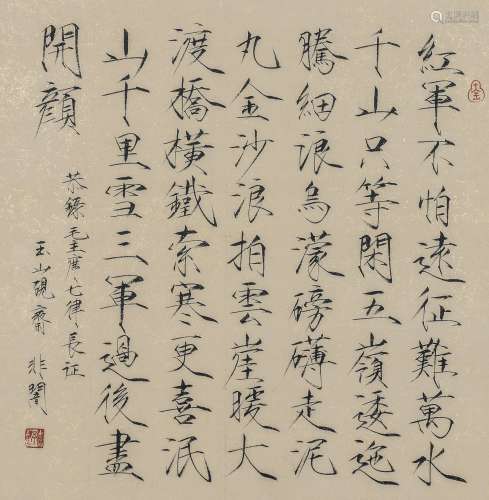 紅軍不怕遠征難萬水
千山只等閑五嶺逶迤
騰細浪烏濛磅礴走泥
丸金沙浪拍雲崖暖大
渡橋橫鐵索寒更喜泯
山千里雪三軍過後盡
開顏
恭錄毛主席、七律、長征
玉山硯齋 非闇